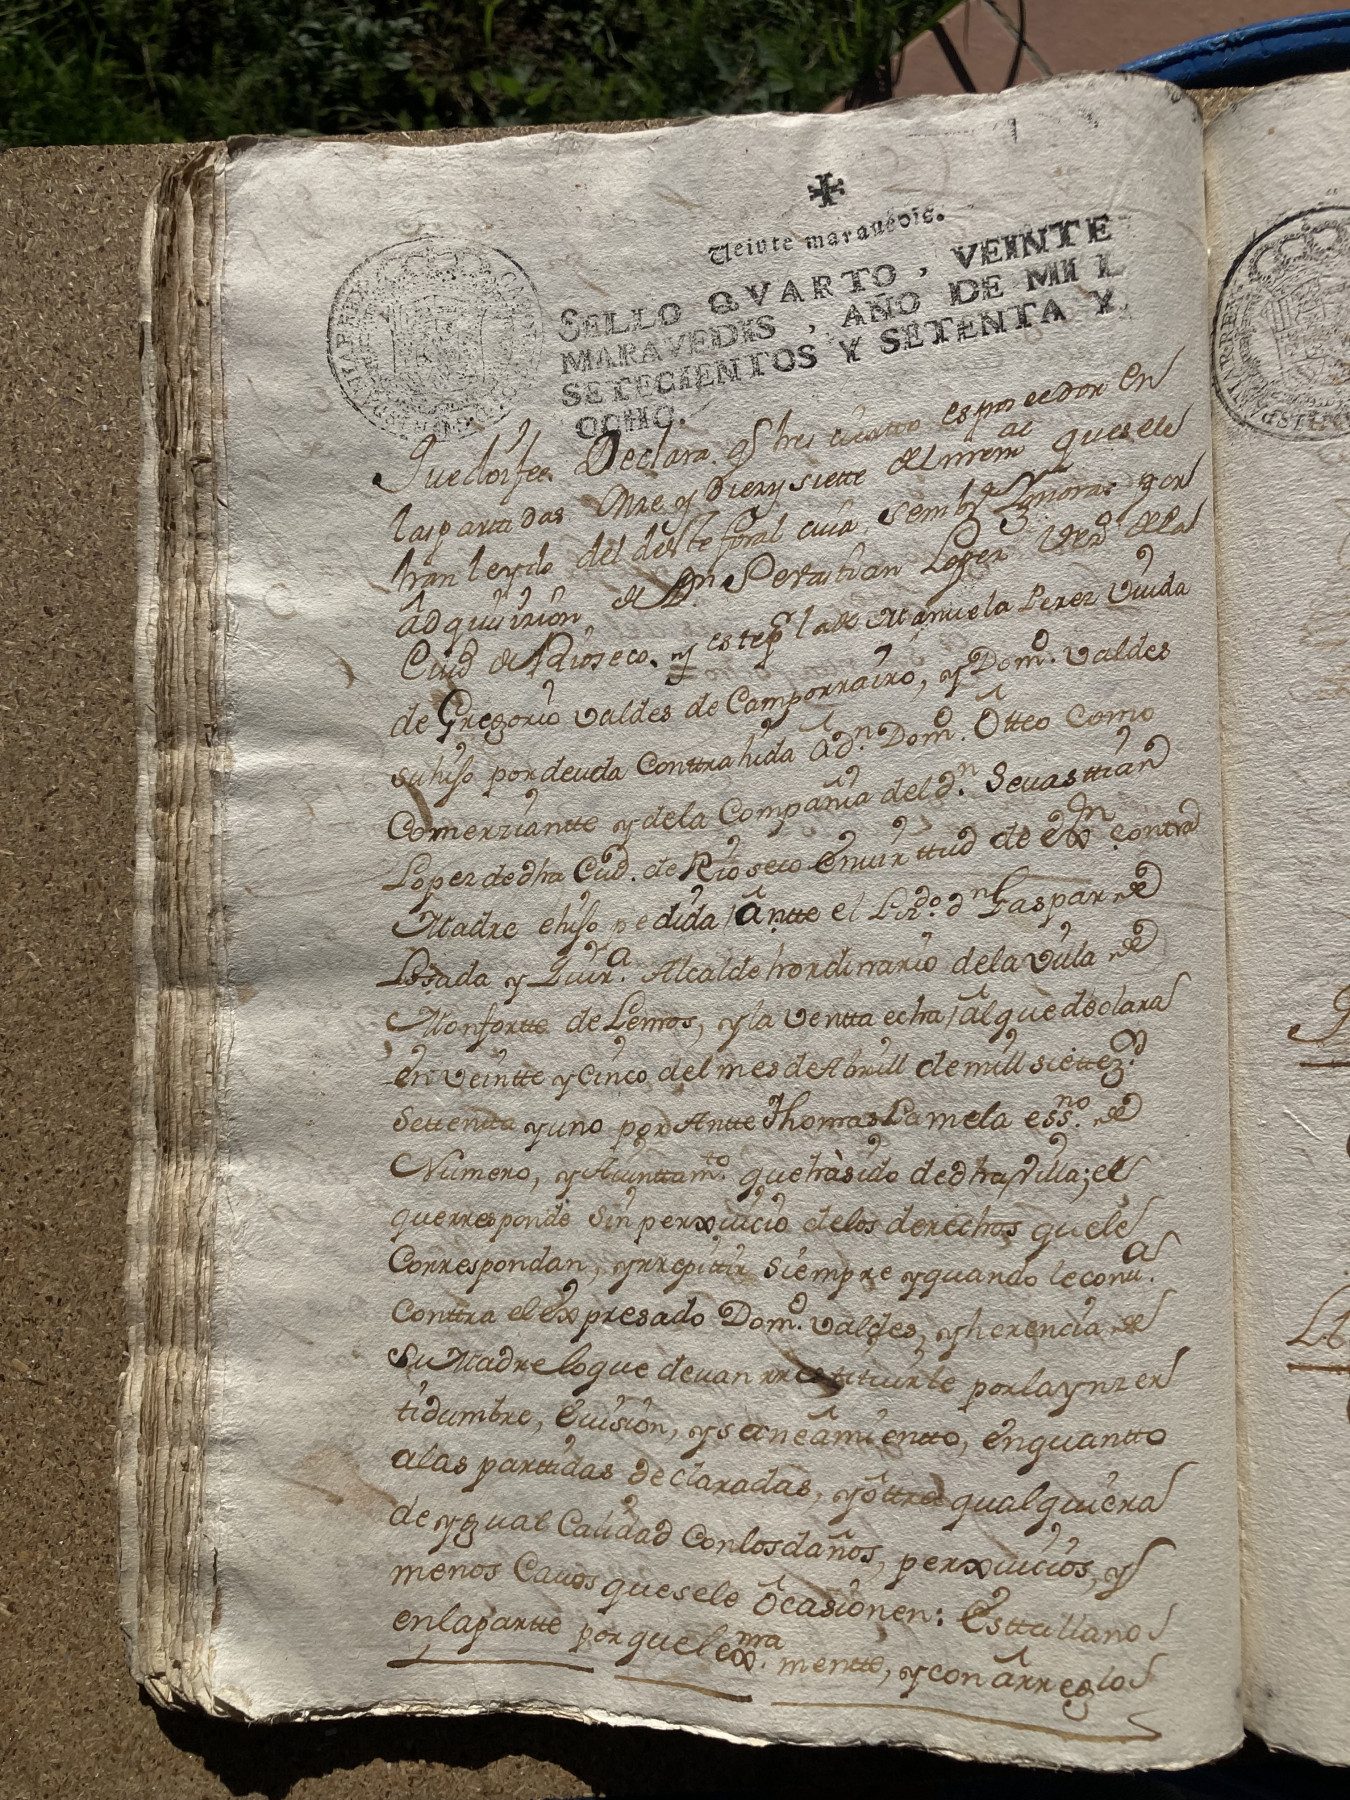 Veinte marauedis.
SELLO QVARTO, VEINTE
MARAVEDIS, AÑO DE MIL
SETECIENTOS Y SETENTA Y
OCHO.
Declara qe tres quatro es poseedor en
las partidas Onze y Diezy siette del mem.al quesele
han leydo del deste foral cuia por
adquisizion de Dn Sevastian Lopez Vez.o dela
Ciud de Rioseco, y este pr la de Manuela Perez Viuda
de Gregorio Valdes de Camporrairo, y Dom.o Valdes
su hiso por deuda Conttrahida â d.n Dom.o Ôtteo Como
Comerziantte y dela Compañia del d.n Sevasttian
Lopez de dha Ciud. de Rioseco en uirttud de exon contra
Madre e hiso pedida ântte el Liz.do d.n Gaspar de
Losada y Quir.a Alcalde hordinario dela Villa de
Monfortte de Lemos, y la ventta echa âl que declara
en veintte y cinco del mes de Abrill de mill siettez.s
settentta y uno por Antte Thomas Lamela ess.no de
Numero, y Aiunttam.to que hà sido de dha Villa; el
que rresponde sin perxuicio delos derechos que le
Correspondan, y rrepittir siempre y quando le conu.a
Conttra el expresado Dom.o Valdes, y herencia de
Su Madre lo que devan rresttituirle por la ynzer
tidumbre, Euision, y saneâmientto, en quantto
a las parttidas declaradas, y ôttra qualquiera
de ygual Calidad Con los daños, perxuicios, y
menos Cauos que sele ôcasionen: Estta llano
en la partte por que le exma mentte, y con ârreglo